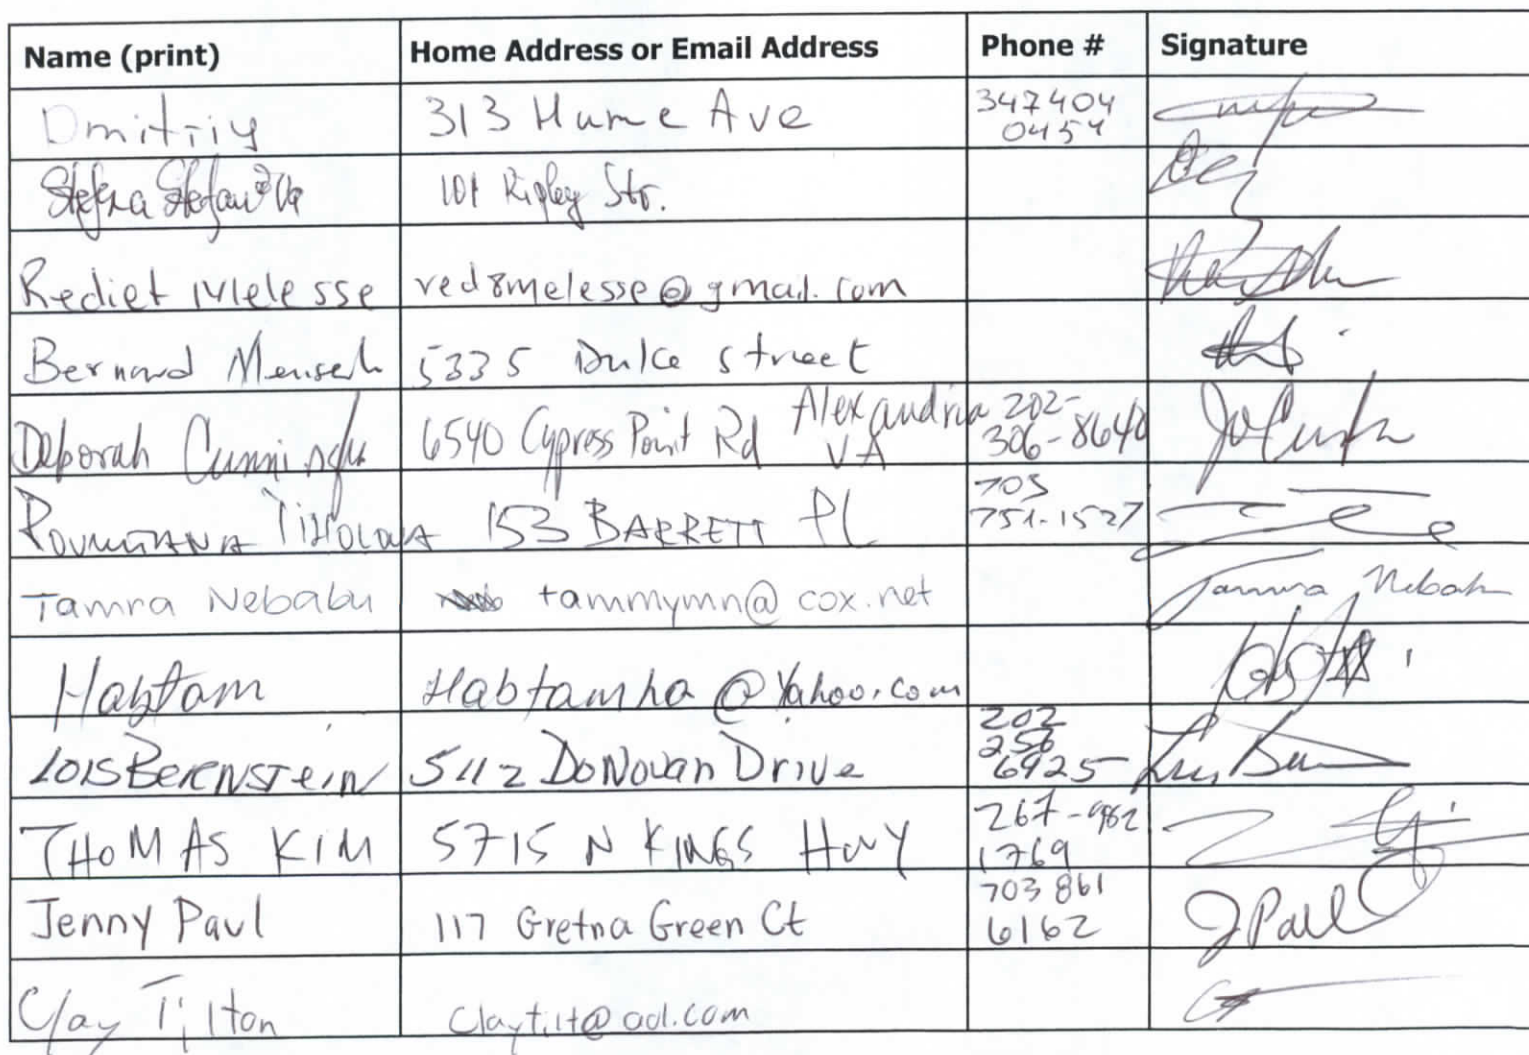 Name (print) Home Address or Email Address Phone # Signature
Dmitriy 313 Hume Ave 347 404
0454
101 Ripley Str.
Rediet Melesse red8melesse@gmail.com
Bernard Mensah 5335 Duke street
Deborah 6540 Cypress Point Rd Alexandria 202-
VA 306-8640
153 BARRETT Pl 703
751-1527
Tamra Nebabu tammymn@cox.net Tamra Nebabu
Habtam Habtamha@Yahoo.com
202
256
LOIS BERENSTEIN 5112 DoNovan Drive 6925
THOMAS KIM 5715 N KINGS HWY 267-982
1769
Jenny Paul 117 Gretna Green Ct 703 861
6162 J Paul
Clay Tilton Claytilt@aol.com